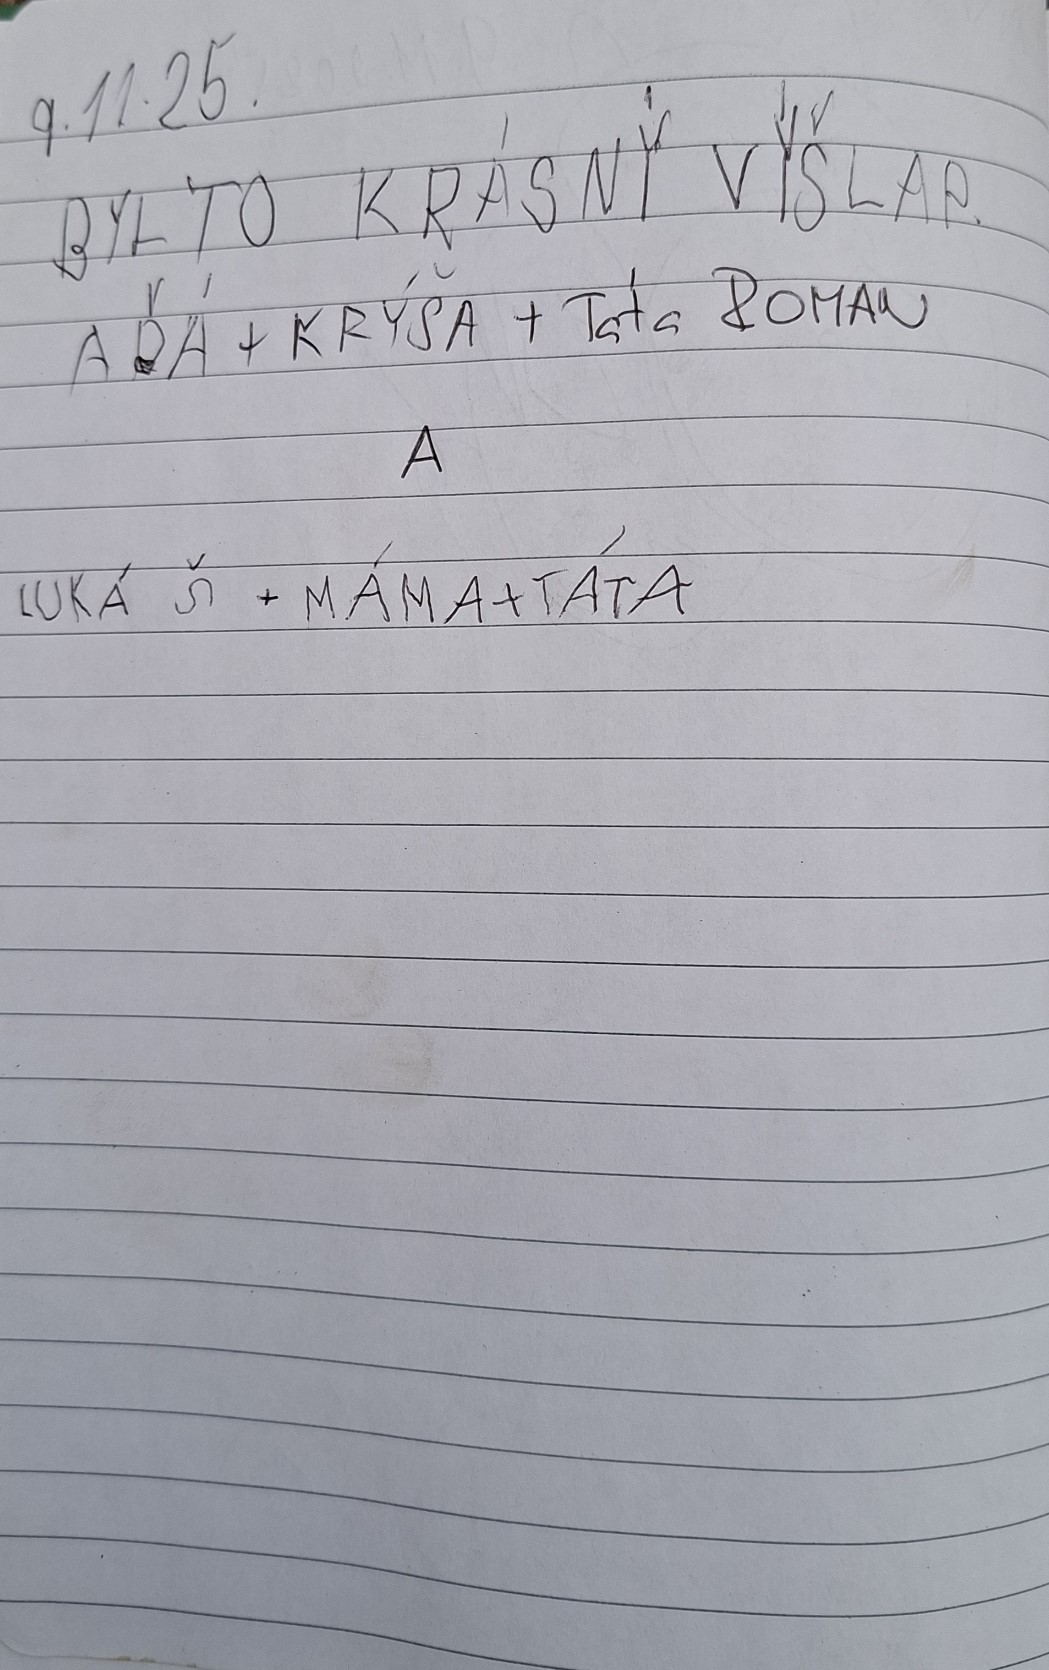 9.11.25.
BYL TO KRÁSNÝ VÝŠLAP.
AĎÁ + KRÝŠA + Táta ROMAN
A
LUKÁŠ + MÁMA + TÁTA